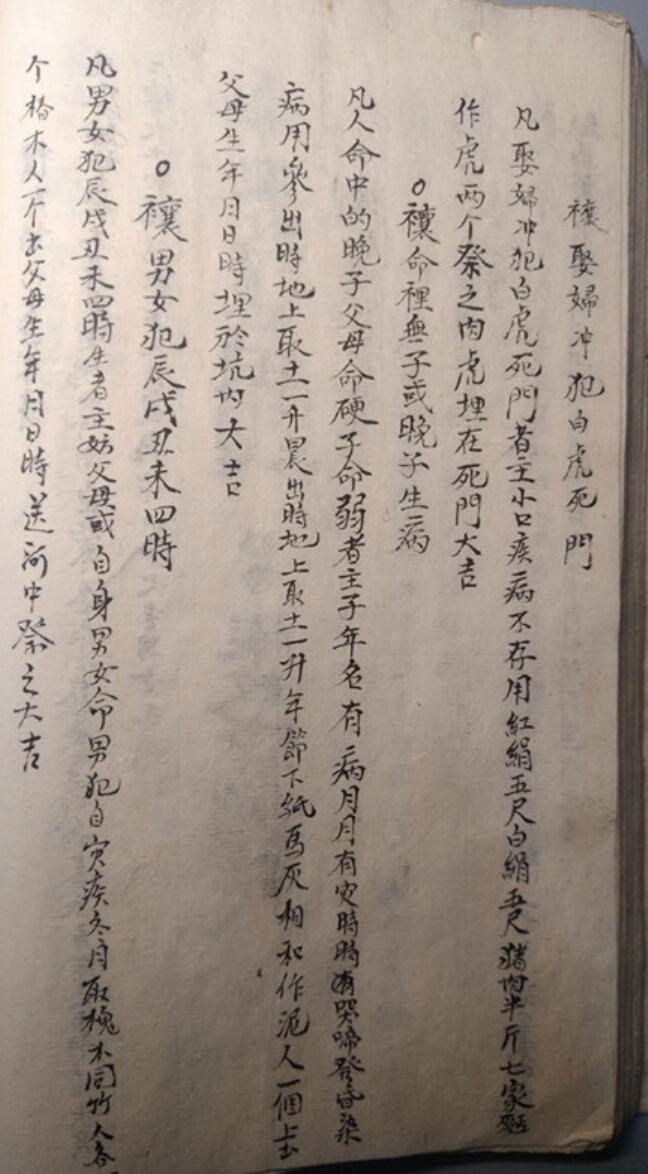 禳娶婦冲犯白虎死門
凡娶婦冲犯白虎死門者主小口疾病不存用紅絹五尺白絹五尺猪肉半斤七家麺
作虎两个祭之肉虎埋在死門大吉
○禳命裡無子或晚子生病
凡人命中的晚子父母命硬子命弱者主子年多有病月月有灾時時有哭啼發昏染
病用參出時地上取土一升晨出時地上取土一升年節下紙馬灰相和作泥人一個上去
父母生年月日時埋於坑内大吉
○禳男女犯辰戌丑未四時
凡男女犯辰戌丑未四時生者主妨父母或自身男女命男犯自灾疾冬月取槐木同竹人各
个椿木人一个去父母生年月日時送河中祭之大吉